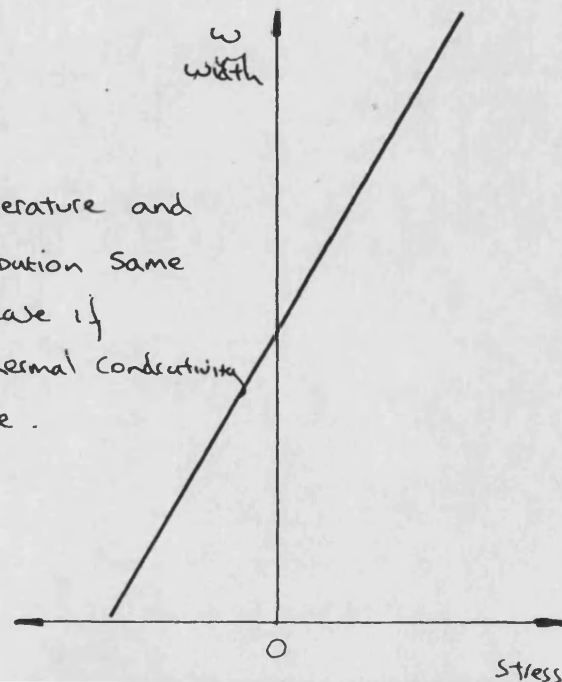 w
width
erature and
bution Same
if
hermal Conductivity
e.
0
Stress